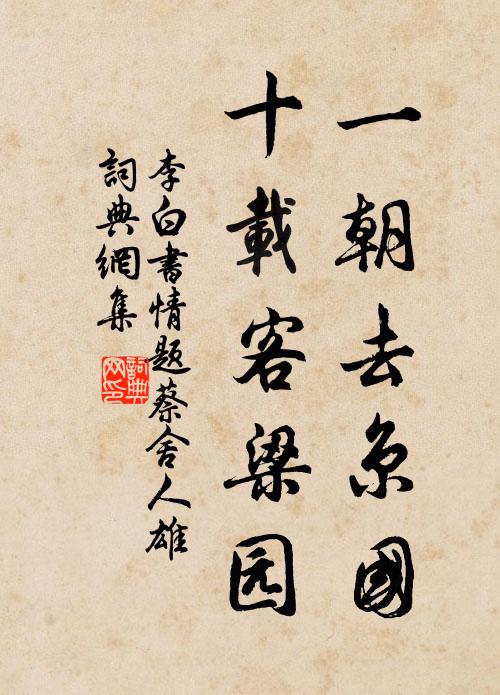 一朝去京國
十載客梁园
李白書情题蔡舍人雄
詞典網集
詞典网印